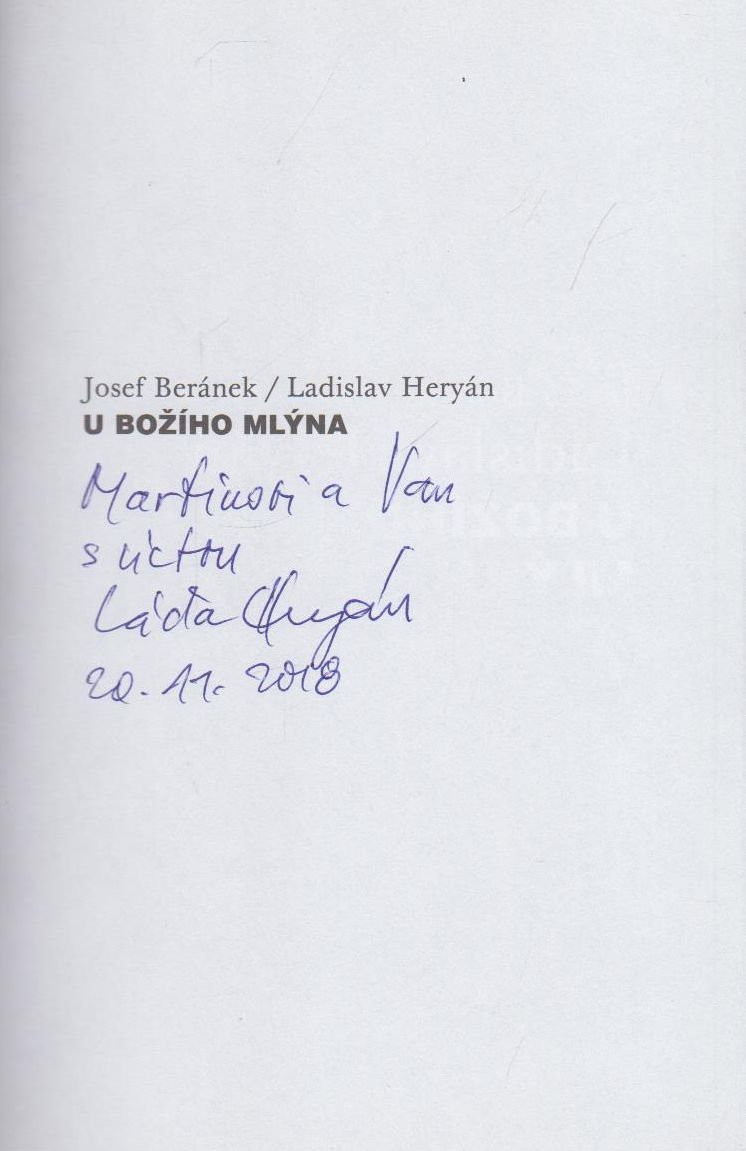 Josef Beránek / Ladislav Heryán
U BOŽÍHO MLÝNA
Martinovi a Van
s úctou
Láďa Heryán
20. 11. 2018